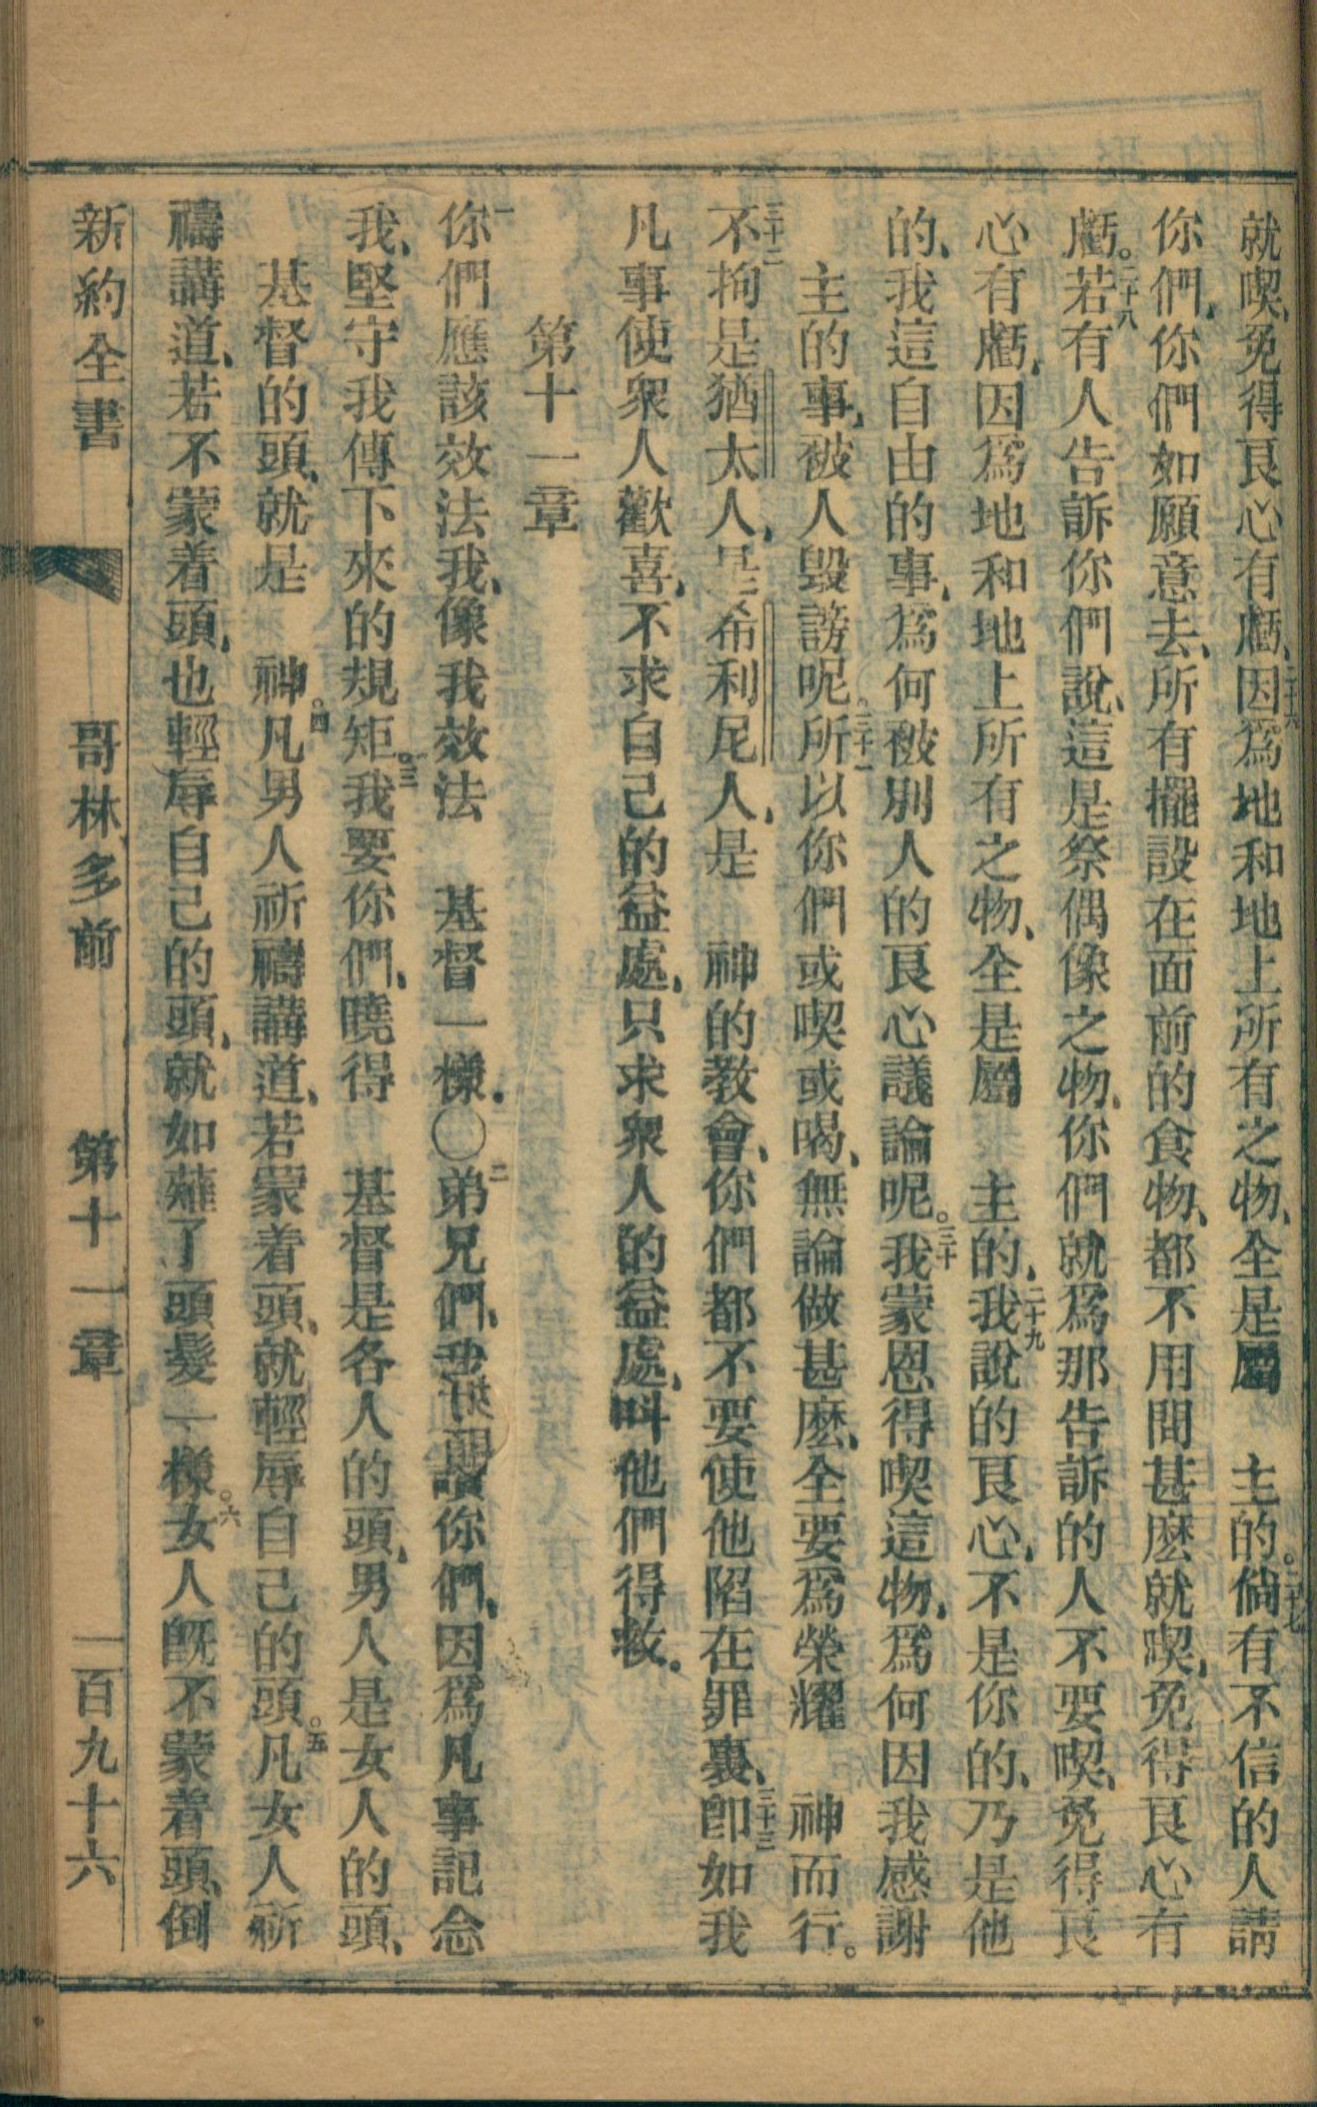 就喫、免得良心有虧、二十六因爲地和地上所有之物、全是屬　主的。二十七倘有不信的人請
你們、你們如願意去、所有擺設在面前的食物、都不用問甚麽就喫、免得良心有
虧。二十八若有人告訴你們說、這是祭偶像之物、你們就爲那告訴的人不要喫、免得良
心有虧、因爲地和地上所有之物、全是屬　主的、二十九我說的良心、不是你的、乃是他
的、我這自由的事、爲何被別人的良心議論呢。三十我蒙恩得喫這物、爲何因我感謝
主的事、被人毀謗呢。三十一所以你們或喫或喝、無論做甚麽、全要爲榮耀　神而行。
三十二不拘是猶太人、是希利尼人、是　神的教會、你們都不要使他陷在罪裏、三十三卽如我
凡事使衆人歡喜、不求自己的益處、只求衆人的益處、叫他們得救.
第十一章
一你們應該效法我、像我效法　基督一樣.〇二弟兄們、我讚你們、因爲凡事記念
我、堅守我傳下來的規矩。三我要你們、曉得　基督是各人的頭、男人是女人的頭、
基督的頭、就是　神。四凡男人祈禱講道、若蒙着頭、就輕辱自己的頭。五凡女人祈
禱講道、若不蒙着頭、也輕辱自己的頭、就如薙了頭髮一樣。六女人旣不蒙着頭、倒
新約全書　哥林多前　第十一章　一百九十六